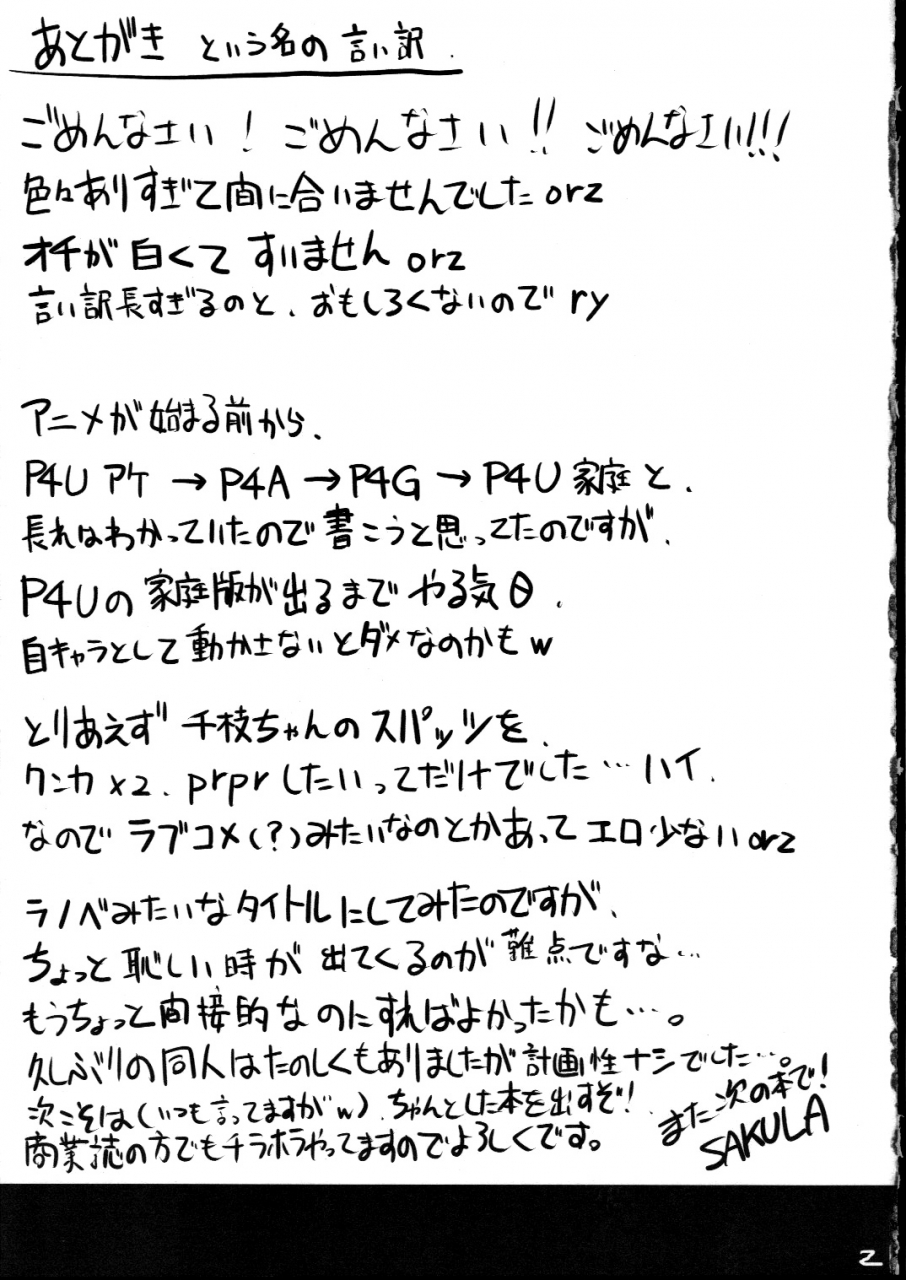 あとがき という名の言い訳.
ごめんなさい! ごめんなさい!! ごめんなさい!!!
色々ありすぎて間に合いませんでした orz
オチが白くて すいません orz
言い訳長すぎるのと、おもしろくないので ry
アニメが始まる前から、
P4U アケ → P4A → P4G → P4U 家庭と、
長れはわかっていたので書こうと思ってたのですが、
P4Uの家庭版が出るまでやる気θ.
自キャラとして動かさないとダメなのかもw
とりあえず 千枝ちゃんのスパッツを、
クンカ×2、prprしたいってだけでした…ハイ.
なので ラブコメ(?)みたいなのとかあって エロ少ない orz
ラノベみたいなタイトルにしてみたのですが、
ちょっと恥しい時が出てくるのが難点ですな…
もうちょっと間接的なのにすればよかったかも…。
久しぶりの同人はたのしくもありましたが計画性ナシでした…。
次こそは(いつも言ってますがw)、ちゃんとした本を出すぞ!
商業誌の方でもチラホラやってますのでよろしくです。
また次の本で!
SAKULA
2